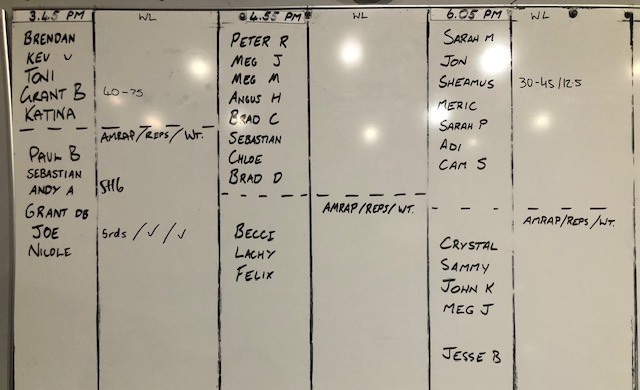 3.45 PM WL
BRENDAN
KEV V
TONI
GRANT B 40-75
KATINA
AMRAP/REPS/WT.
PAUL B
SEBASTIAN
ANDY A SH6
GRANT DB
JOE 5rds / ✓ / ✓
NICOLE
4.55 PM WL
PETER R
MEG J
MEG M
ANGUS H
BRAD C
SEBASTIAN
CHLOE
BRAD D
AMRAP/REPS/WT.
BECCI
LACHY
FELIX
6.05 PM WL
SARAH M
JON
SHEAMUS 30-45/12.5
MERIC
SARAH P
ADI
CAM S
AMRAP/REPS/WT.
CRYSTAL
SAMMY
JOHN K
MEG J
JESSE B